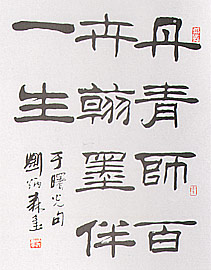 丹青師百
卉翰墨伴
一生
于曙光句
劉炳森書